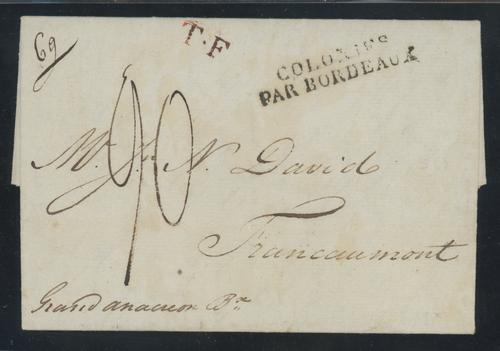 69
T.F
COLONIES
PAR BORDEAUX
90
Mr. Jn. N. David
Francaumont
Grand anacreon Bx